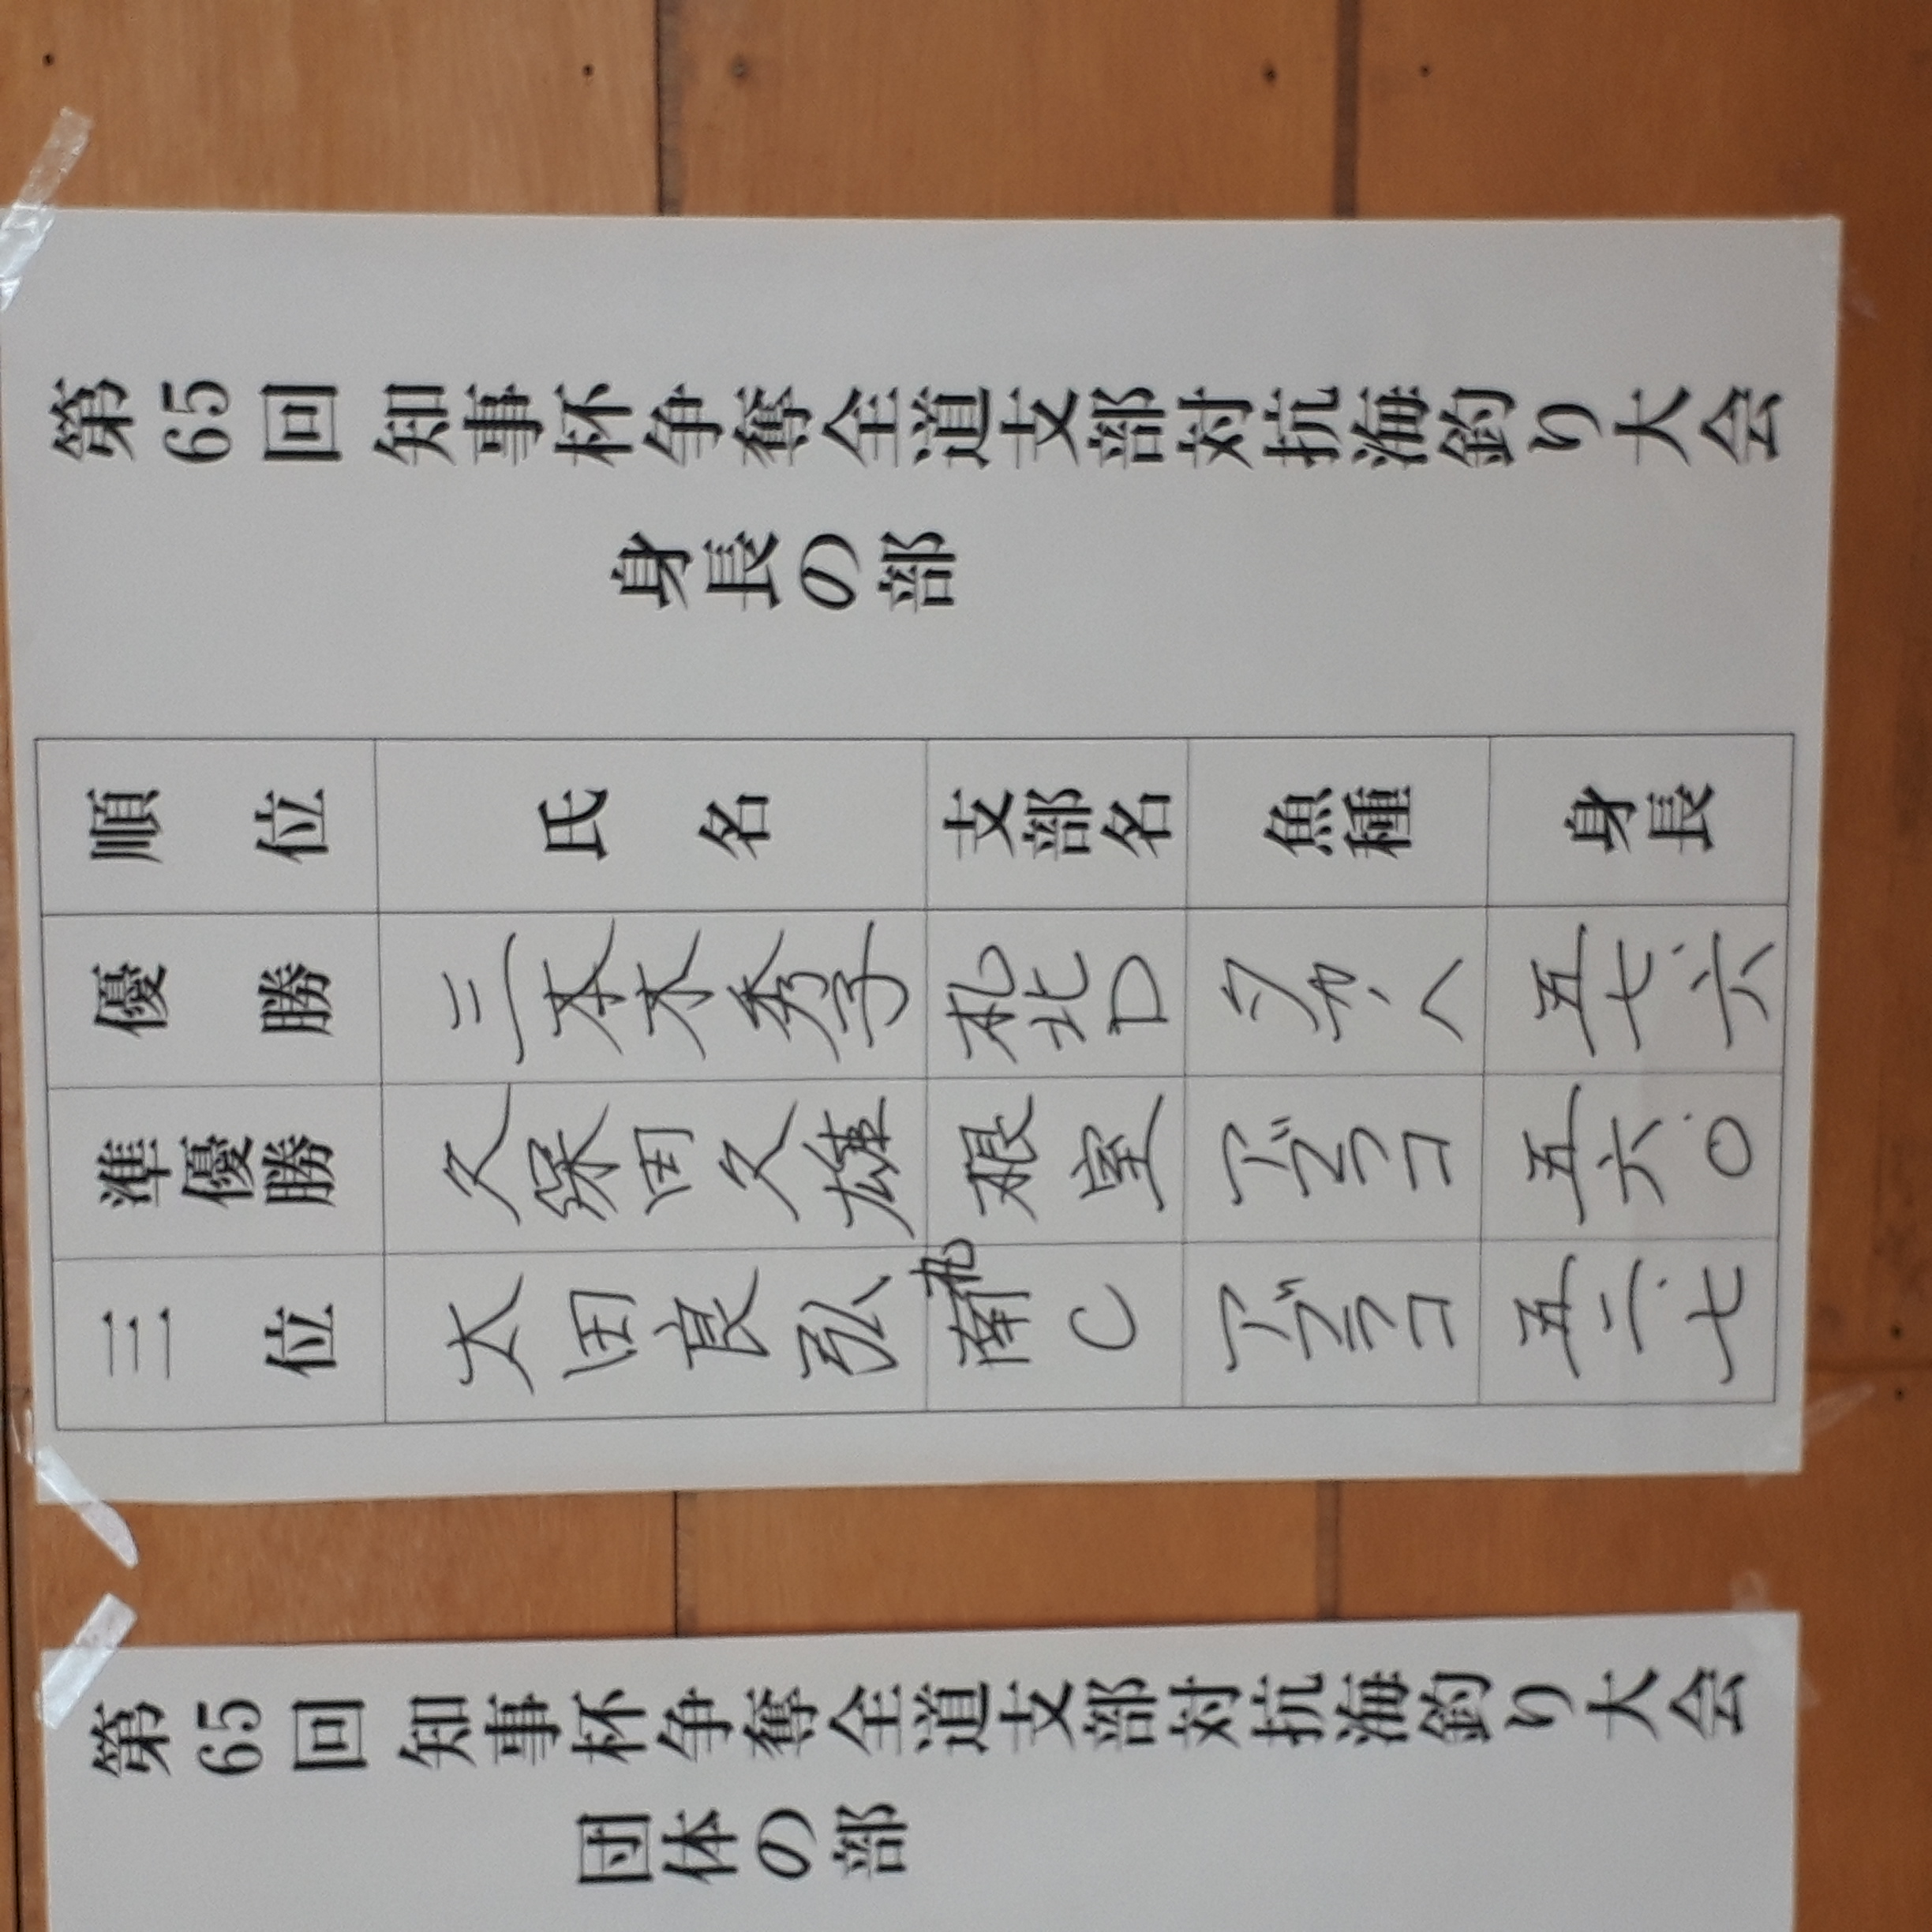 第65回 知事杯争奪全道支部対抗海釣り大会
身長の部
順位 氏名 支部名 魚種 身長
優勝 三本木秀子 札北D タカノハ 五七、六
準優勝 久保田久雄 根室 アブラコ 五六、〇
三位 大田良弘 札南C アブラコ 五二、七
第65回 知事杯争奪全道支部対抗海釣り大会
団体の部